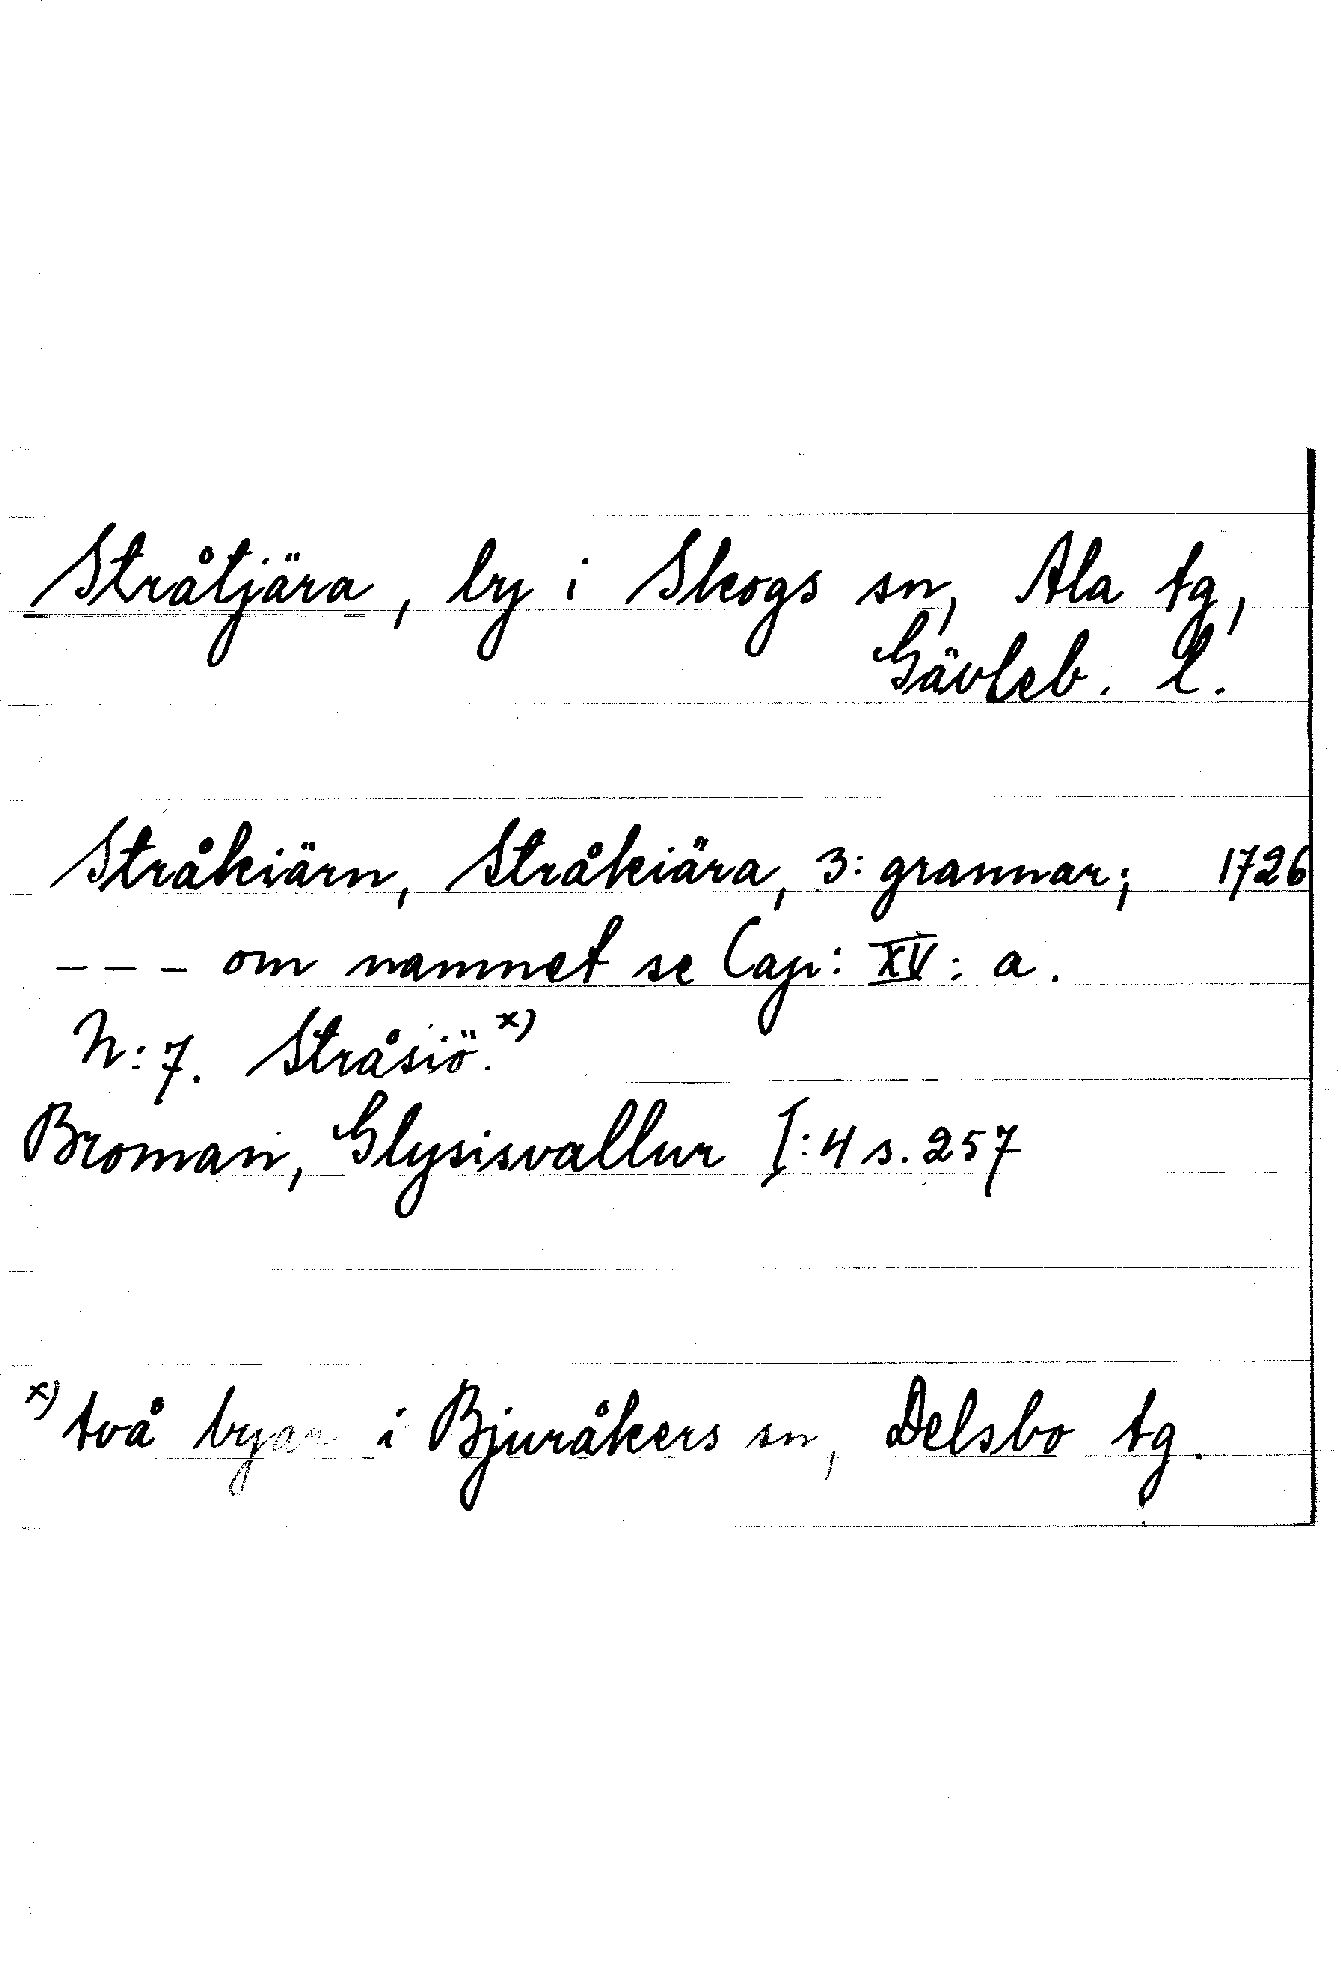 Stråtjära, by i Skogs sn, Ala tg,
Gävleb. l.
Stråkiärn, Stråkiära, 3: grannar; 1726
--- om namnet se Cap: XV: a.
N:7. Stråsiö.x)
Broman, Glysisvallur I:4 s. 257
x) två byar i Bjuråkers sn, Delsbo tg.